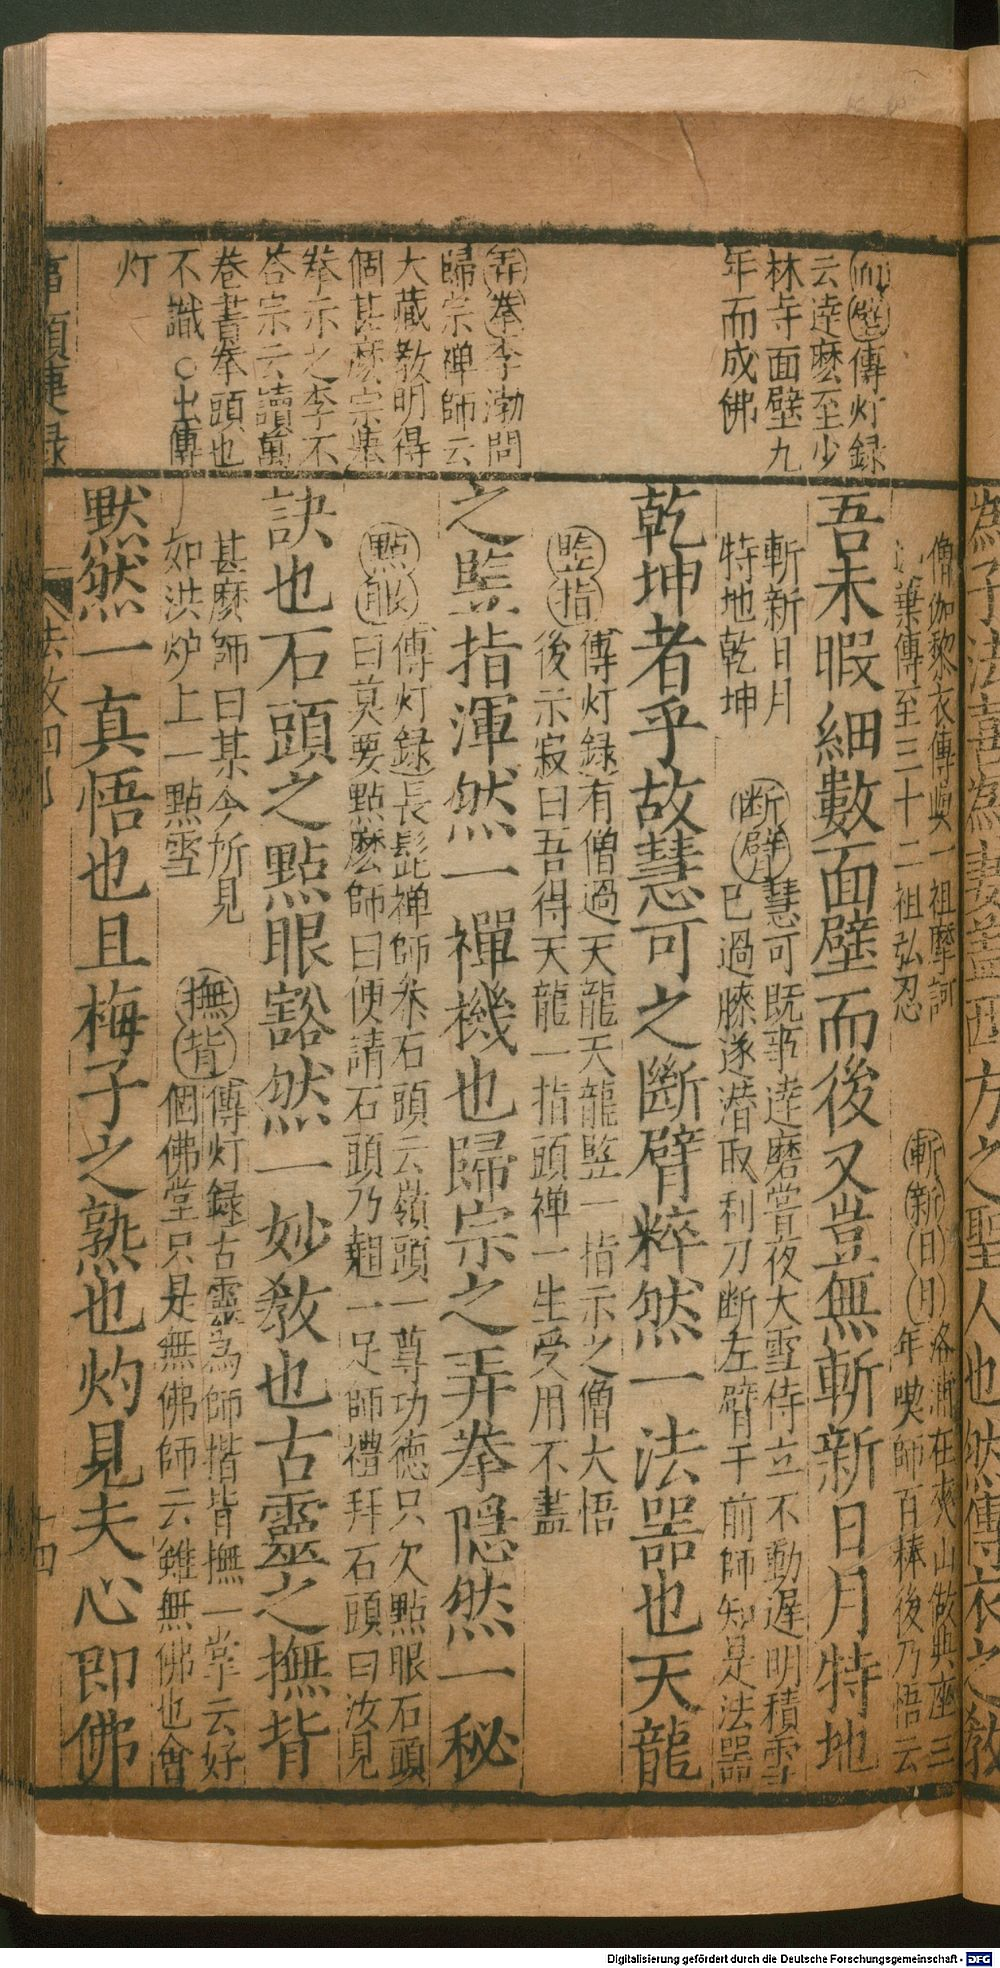 面壁傳灯録
云達麽至少
林寺面壁九
年而成佛
弄拳李渤問
歸宗禅師云
大藏教明得
個甚麽宗竪
拳示之李不
荅宗云讀萬
巻書拳頭也
不識○出傳
灯
為子法喜為妻蓋西方之聖人也然傳衣之教
僧伽黎衣傳與一祖摩訶
葉傳至三十二祖弘忍
斬新日月洛浦在夾山做典座三
年喫師百棒後乃悟云
吾未暇細數面壁而後又豈無斬新日月特地
斬新日月
特地乾坤
断臂慧可既事達磨嘗夜大雪侍立不動遅明積雪
已過膝遂潜取利刀断左臂于前師知是法噐
乾坤者乎故慧可之斷臂粹然一法噐也天龍
竪指傳灯録有僧過天龍天龍竪一指示之僧大悟
後示寂曰吾得天龍一指頭禅一生受用不盡
之竪指渾然一禪機也歸宗之弄拳隠然一秘
點眼傳灯録長髭禅師叅石頭云嶺頭一尊功徳只欠點眼石頭
曰莫要點麽師曰便請石頭乃翹一足師禮拜石頭曰汝見
訣也石頭之點眼豁然一妙教也古靈之撫背
甚麽師曰某今所見
如洪炉上一點雪
撫背傳灯録古靈為師揩背撫一掌云好
個佛堂只是無佛師云雖無佛也會
黙然一真悟也且梅子之熟也灼見夫心即佛
十四
Digitalisierung gefördert durch die Deutsche Forschungsgemeinschaft - DFG